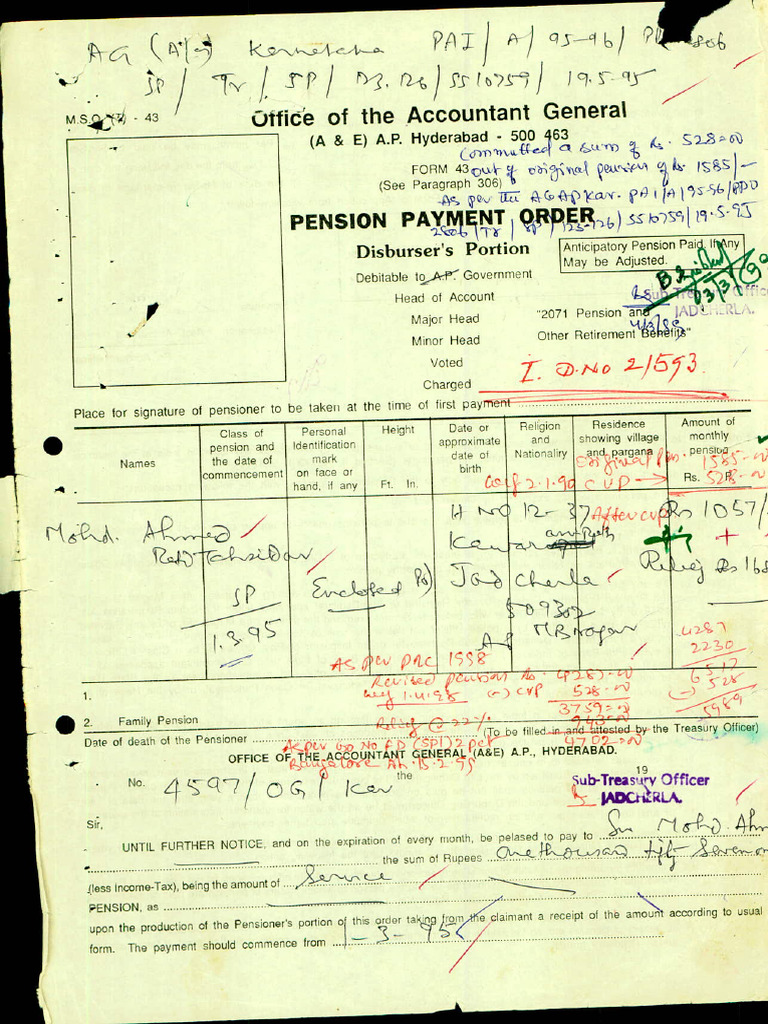 AG (A/c) Karnataka PAI / A / 95-96 / PP 2806
SP / Tr / SP / 123.126 / SS10759 / 19.5-95
M.S.O. (T) - 43
Office of the Accountant General
(A & E) A.P. Hyderabad - 500 463
Committed a sum of Rs. 528=00
FORM 43 out of original pension of Rs 1585/-
(See Paragraph 306)
As per the AG AP Kar. PAI/A/95-96/PPO
PENSION PAYMENT ORDER
2806/Tr/SP/123-126/SS10759/19.5.95
Disburser's Portion
Anticipatory Pension Paid, If Any
May be Adjusted.
Debitable to A.P. Government
Head of Account
Sub-Treasury Officer
JADCHERLA.
Major Head "2071 Pension and
Minor Head Other Retirement Benefits"
Voted
Charged
I.D.No 21593
Place for signature of pensioner to be taken at the time of first payment
Names
Class of pension and the date of commencement
Personal Identification mark on face or hand, if any
Height Ft. In.
Date or approximate date of birth
Religion and Nationality
Residence showing village and pargana
Amount of monthly pension Rs.
original pen. 1585=00
wef 2.1.90 CVP → 528=00
H NO 12-37 After cvp Rs 1057/-
Mohd. Ahmed
Retd Tahsildar
Relief Rs 168
Enclosed
Jad cherla
SP
509302
1.3.95
MB Nagar
4287
2230
6517
(-) 528
5989
As per PRC 1998
Revised pension Rs. 4287=00
wef 1.4.98 (-) CVP 528=00
3759=00
1.
2. Family Pension
Relief @ 22% 943=00
Date of death of the Pensioner (To be filled in and attested by the Treasury Officer)
4702=00
As per GO No FD (SPI) 2 pet
OFFICE OF THE ACCOUNTANT GENERAL (A&E) A.P., HYDERABAD.
Bangalore
No. 4597/OG/Kar the 19
Sub-Treasury Officer
JADCHERLA.
Sir,
UNTIL FURTHER NOTICE, and on the expiration of every month, be pelased to pay to Sri Mohd Ahm
the sum of Rupees One thousand fifty Seven on
(less income-Tax), being the amount of Service
PENSION, as
upon the production of the Pensioner's portion of this order taking from the claimant a receipt of the amount according to usual
form. The payment should commence from 1-3-95